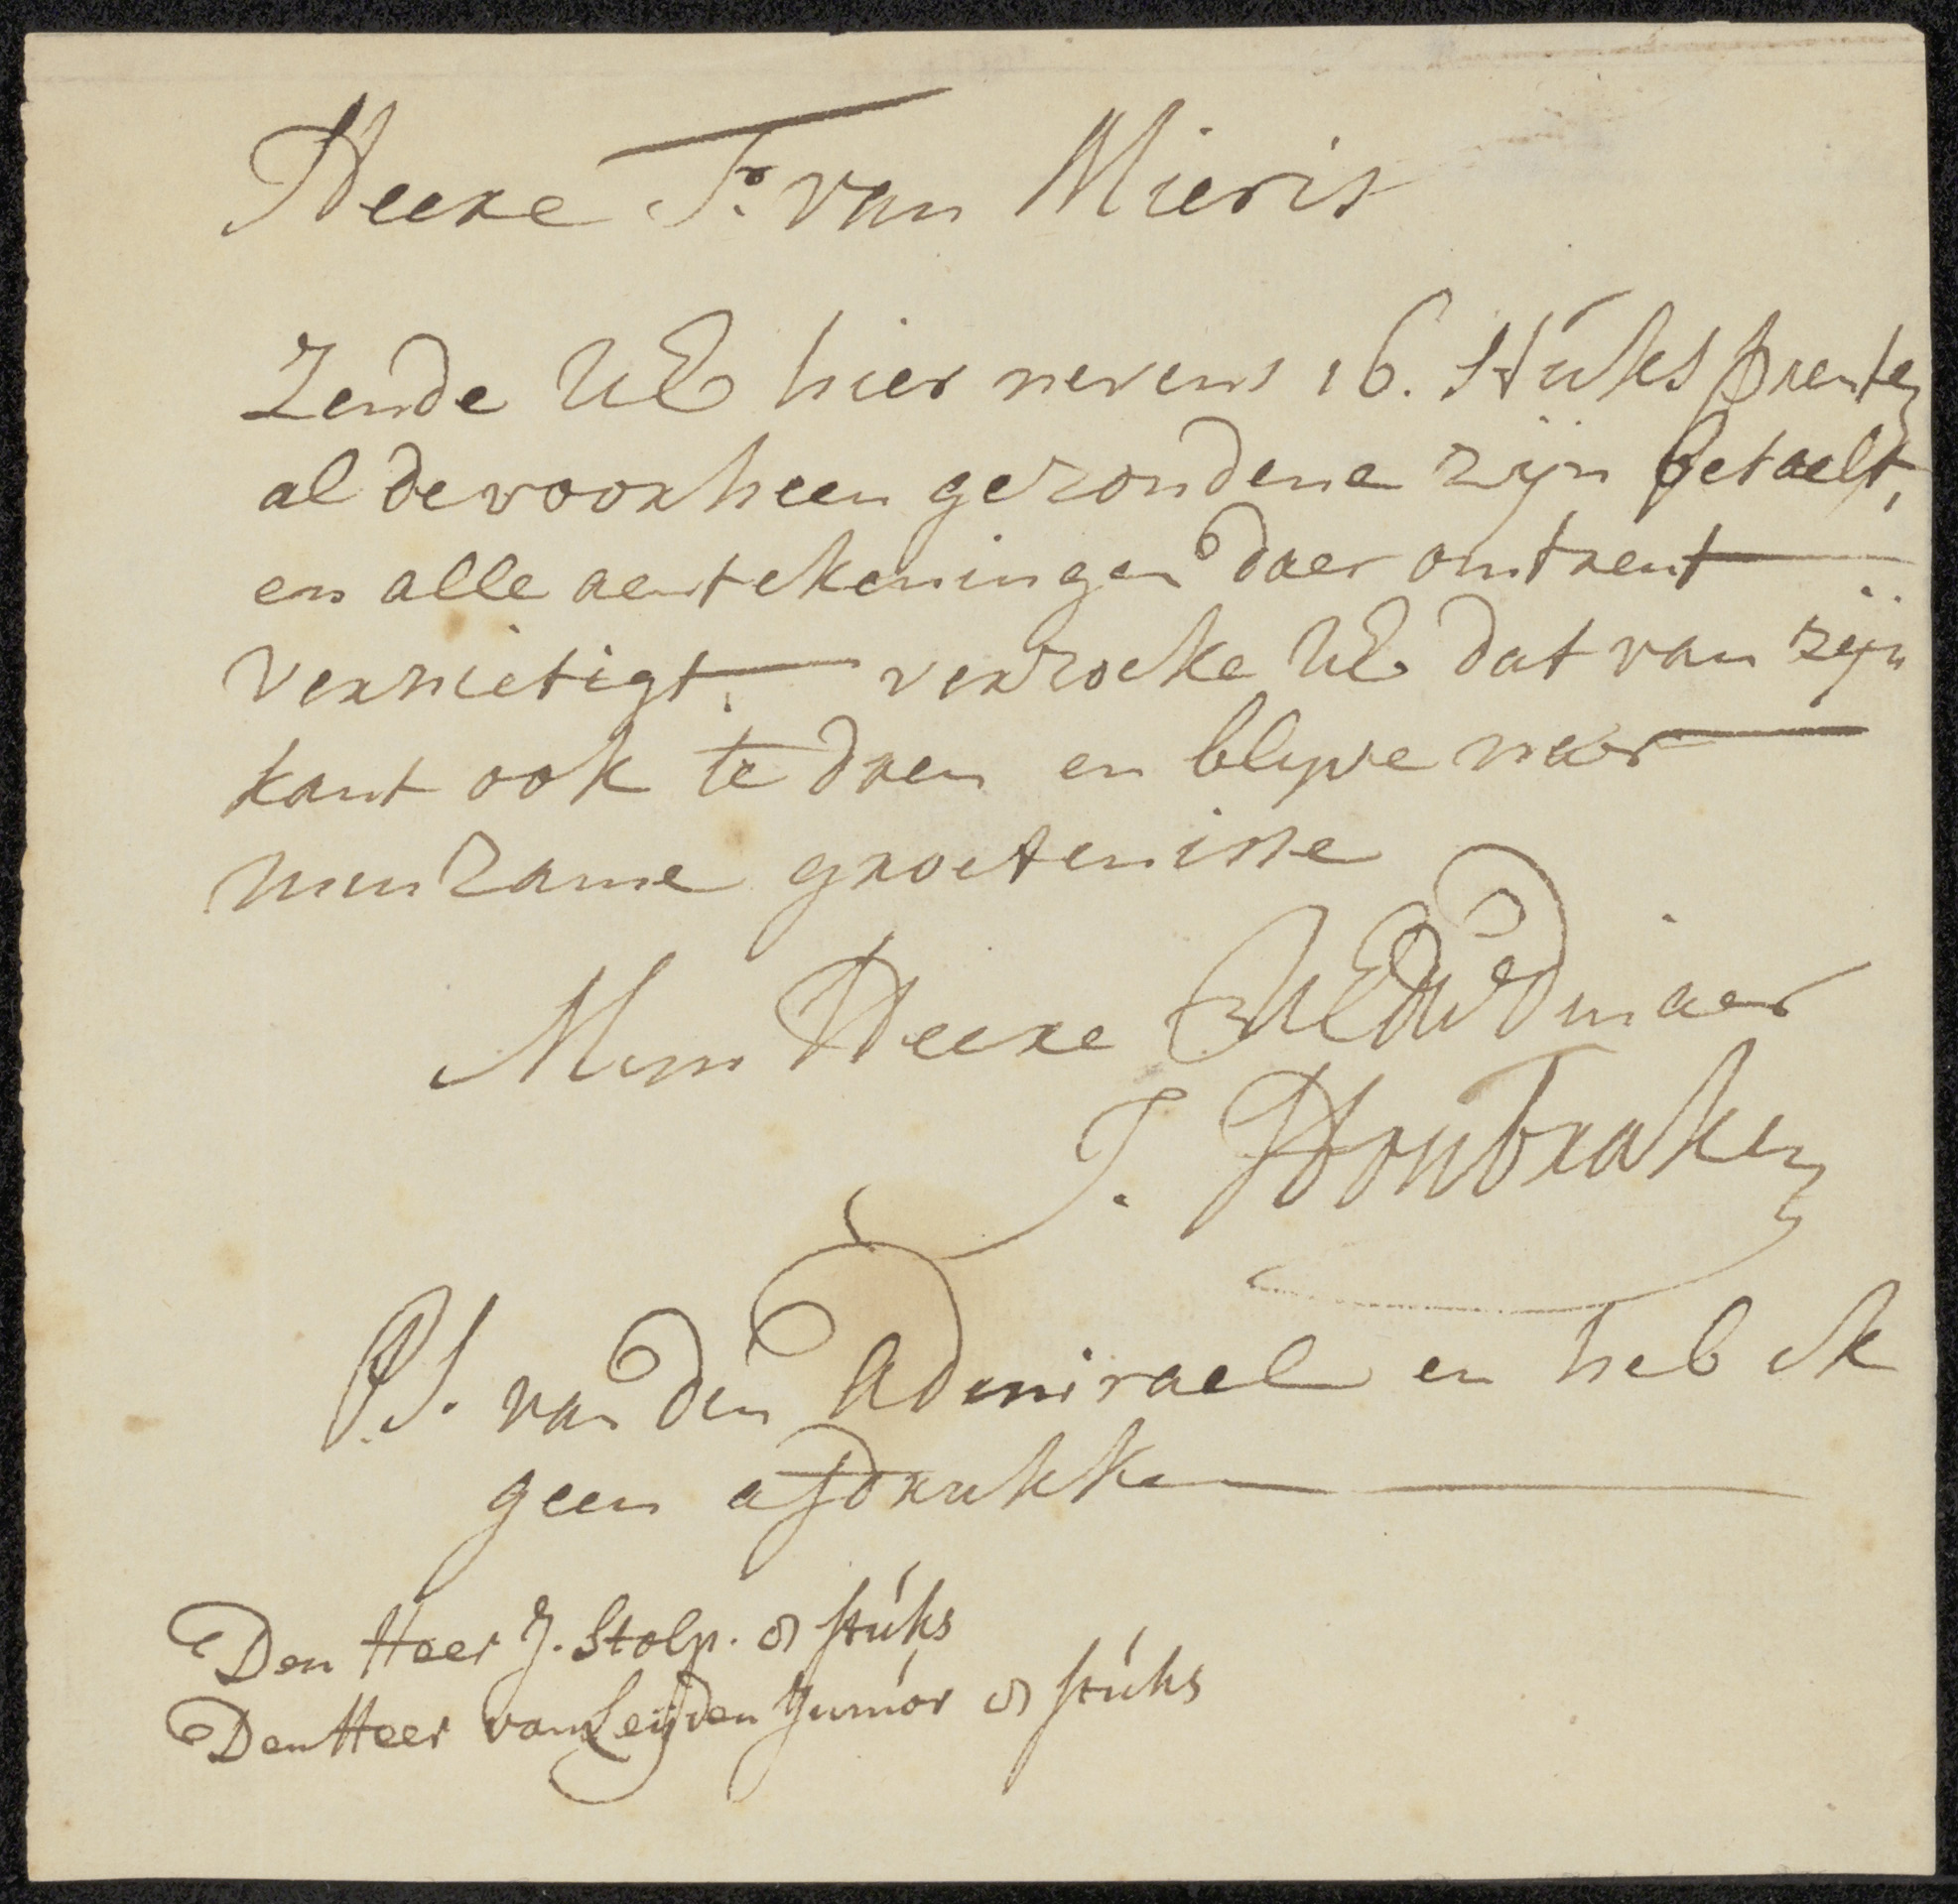 Heere Fr. van Mieris
Zende UE hier nevens 16. Stuks prenten
al de voorheen gezondene zijn betaelt,
en alle aentekeningen daer omtrent
vernietigt, verzoeke UE dat van zijn
kant ook te doen en blijve naer
minzame groetenisse
Mijn Heere UEDW Dinaer
J. Houbraken
P.S. van den Admirael en heb ik
geen afdrukke
Den Heer J. Stolp. 8 stuks
Den Heer van Leijden Junior 8 stuks